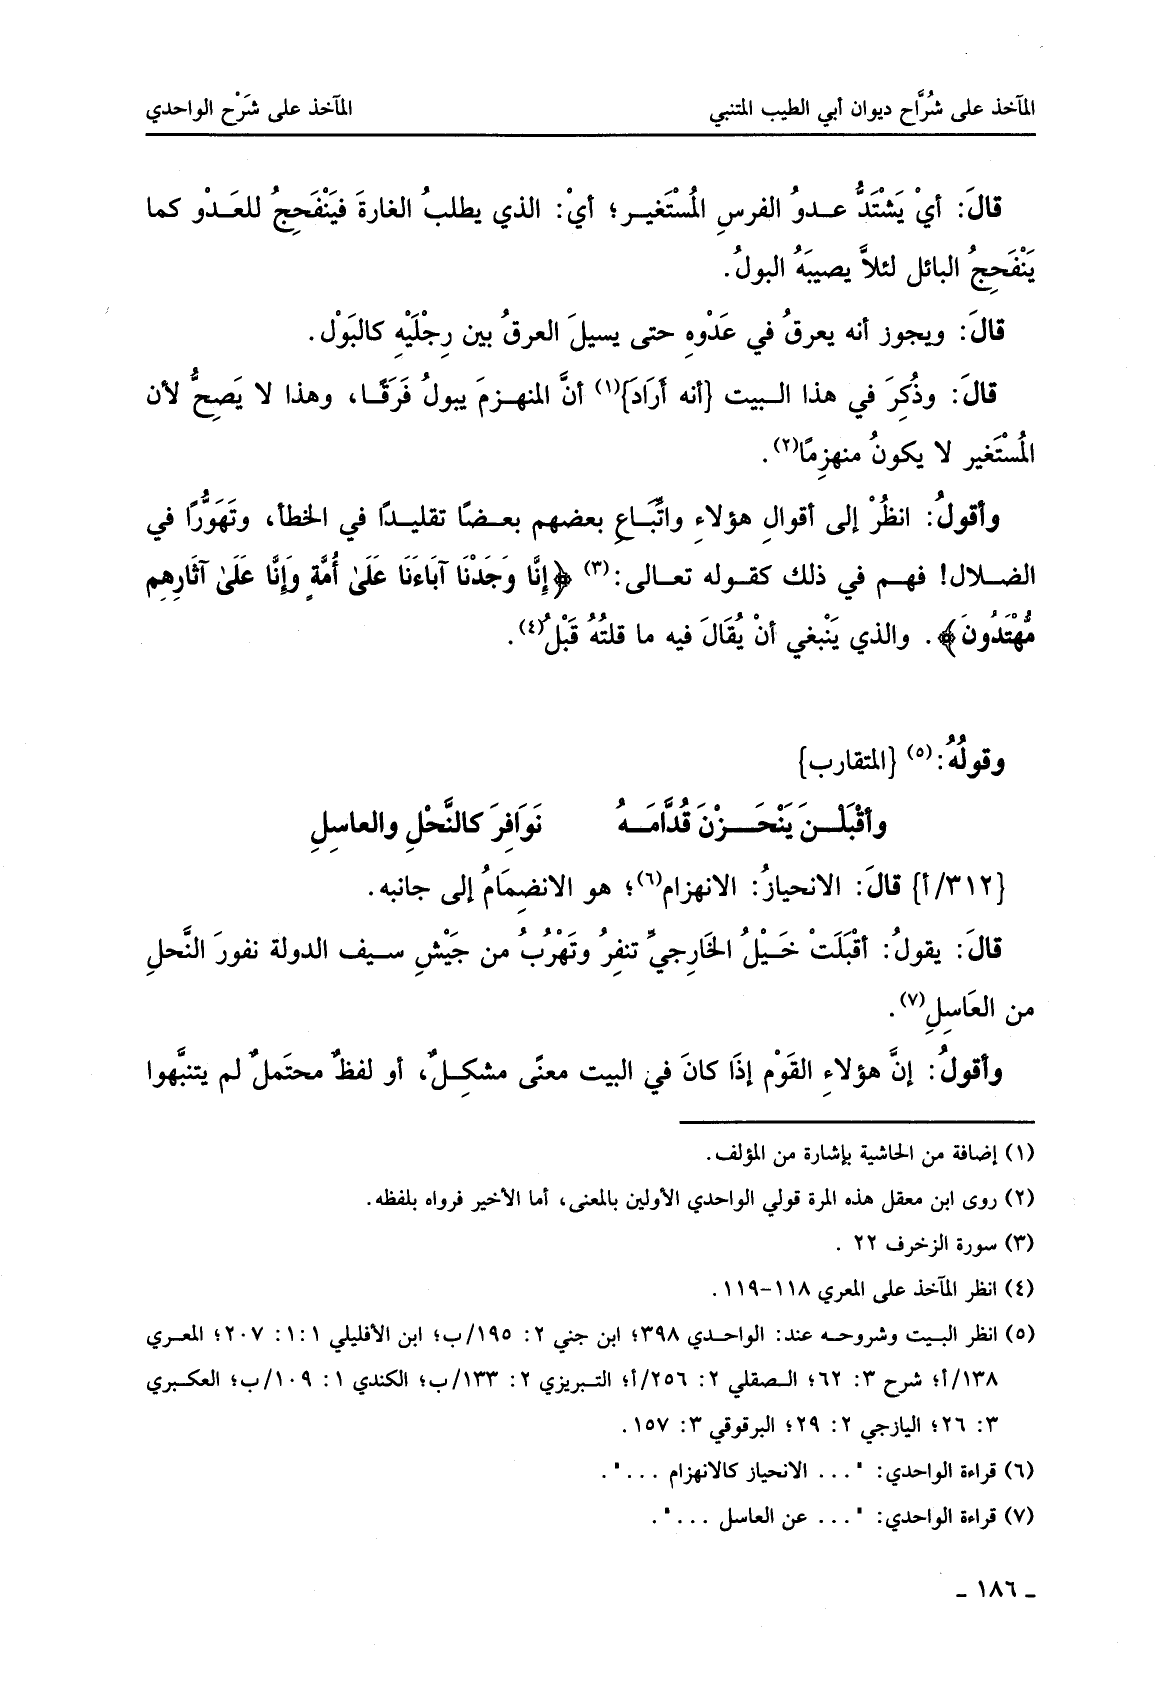 المآخذ على شُرَّاح ديوان أبي الطيب المتنبي المآخذ على شَرْح الواحدي
قالَ: أيْ يَشْتَدُّ عـدوُ الفرسِ المُسْتَغيـر؛ أيْ: الذي يطلبُ الغارةَ فيَنْفَحِجُ للعَـدْو كما
يَنْفَحِجُ البائل لئلاَّ يصيبَهُ البولُ.
قالَ: ويجوز أنه يعرقُ في عَدْوِهِ حتى يسيلَ العرقُ بين رِجْلَيْهِ كالبَوْل.
قالَ: وذُكِرَ في هذا البيت {أنه أَرَادَ}(١) أنَّ المنهـزمَ يبولُ فَرَقًـا، وهذا لا يَصحُّ لأن
المُسْتَغير لا يكونُ منهزِمًا(٢).
وأقولُ: انظُرْ إلى أقوالِ هؤلاءِ واتِّبَـاعِ بعضهم بعـضًا تقليـدًا في الخطأ، وتَهَوُّرًا في
الضـلال! فهـم في ذلك كقـوله تعـالى:(٣) ﴿إِنَّا وَجَدْنَا آبَاءَنَا عَلَىٰ أُمَّةٍ وَإِنَّا عَلَىٰ آثَارِهِم
مُّهْتَدُونَ﴾. والذي يَنْبغي أنْ يُقَالَ فيه ما قلتُهُ قَبْلُ(٤).
وقولُهُ:(٥) {المتقارب}
وأقْبَلْـنَ يَنْحَـزْنَ قُدَّامَـهُ نَوَافِرَ كالنَّحْلِ والعاسِلِ
{٣١٢/أ} قالَ: الانحيازُ: الانهزام(٦)؛ هو الانضمَامُ إلى جانبه.
قالَ: يقولُ: أقْبَلَتْ خَـيْلُ الخَارِجيِّ تنفِرُ وتَهْرُبُ من جَيْشِ سـيف الدولة نفورَ النَّحلِ
من العَاسِلِ(٧).
وأقولُ: إنَّ هؤلاءِ القَوْم إذَا كانَ في البيت معنًى مشكِـلٌ، أو لفظٌ محتَملٌ لم يتنبَّهوا
(١) إضافة من الحاشية بإشارة من المؤلف.
(٢) روى ابن معقل هذه المرة قولي الواحدي الأولين بالمعنى، أما الأخير فرواه بلفظه.
(٣) سورة الزخرف ٢٢ .
(٤) انظر المآخذ على المعري ١١٨-١١٩.
(٥) انظر البـيت وشروحـه عند: الواحـدي ٣٩٨؛ ابن جني ٢: ١٩٥/ب؛ ابن الأفليلي ١:١: ٢٠٧؛ المعـري
١٣٨/أ؛ شرح ٣: ٦٢؛ الـصقلي ٢: ٢٥٦/أ؛ التـبريزي ٢: ١٣٣/ب؛ الكندي ١: ١٠٩/ب؛ العكبري
٣: ٢٦؛ اليازجي ٢: ٢٩؛ البرقوقي ٣: ١٥٧.
(٦) قراءة الواحدي: "... الانحياز كالانهزام ...".
(٧) قراءة الواحدي: "... عن العاسل ...".
ـ ١٨٦ ـ